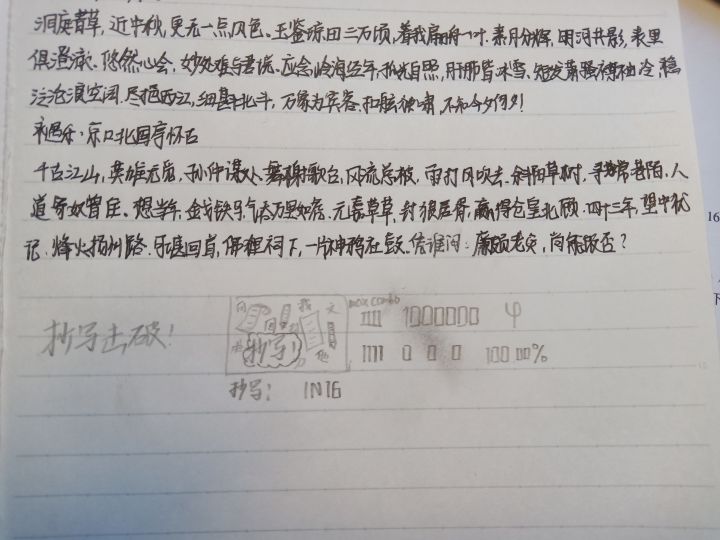 洞庭青草，近中秋，更无一点风色。玉鉴琼田三万顷，着我扁舟一叶。素月分辉，明河共影，表里
俱澄澈。悠然心会，妙处难与君说。应念岭海经年，孤光自照，肝胆皆冰雪。短发萧骚襟袖冷，稳
泛沧浪空阔。尽挹西江，细斟北斗，万象为宾客。扣舷独啸，不知今夕何夕！
永遇乐·京口北固亭怀古
千古江山，英雄无觅，孙仲谋处。舞榭歌台，风流总被，雨打风吹去。斜阳草树，寻常巷陌，人
道寄奴曾住。想当年，金戈铁马，气吞万里如虎。元嘉草草，封狼居胥，赢得仓皇北顾。四十三年，望中犹
记，烽火扬州路。可堪回首，佛狸祠下，一片神鸦社鼓。凭谁问：廉颇老矣，尚能饭否？
抄写击破！
抄写！
max combo
1000000 φ
0 0 0 100.00%
抄写！ IN 16